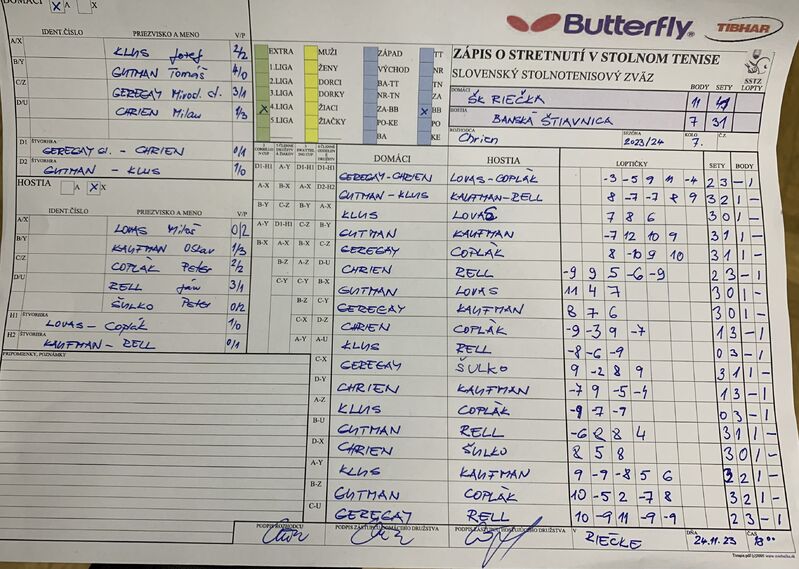 DOMÁCI X A X
IDENT.ČÍSLO PRIEZVISKO A MENO V/P
A/X KLUS Jozef 2/2
B/Y GUTMAN Tomáš 4/0
C/Z GEREGAY Mirosl. st. 3/1
D/U CHRIEN Milan 1/3
D1 ŠTVORHRA GEREGAY st. - CHRIEN 0/1
D2 ŠTVORHRA GUTMAN - KLUS 1/0
HOSTIA A X X
IDENT.ČÍSLO PRIEZVISKO A MENO V/P
A/X LOVAS Miloš 0/2
B/Y KAUFMAN Oskar 1/3
C/Z COPLÁK Peter 2/2
D/U RELL Ján 3/1
ŠULKO Peter 0/2
H1 ŠTVORHRA LOVAS - COPLÁK 1/0
H2 ŠTVORHRA KAUFMAN - RELL 0/1
PRIPOMIENKY, POZNÁMKY
Butterfly TIBHAR
ZÁPIS O STRETNUTÍ V STOLNOM TENISE
SLOVENSKÝ STOLNOTENISOVÝ ZVÄZ
SSTZ
EXTRA MUŽI ZÁPAD TT
1.LIGA ŽENY VÝCHOD NR
2.LIGA DORCI BA-TT TN
3.LIGA DORKY NR-TN ZA
X 4.LIGA ŽIACI ZA-BB X BB
5.LIGA ŽIAČKY PO-KE PO
BA KE
DOMÁCI BODY SETY LOPTY
ŠK RIEČKA 11
HOSTIA
BANSKÁ ŠTIAVNICA 7 31
ROZHODCA Chrien SEZÓNA 2023/24 KOLO 7. Č.Z.
DOMÁCI HOSTIA LOPTIČKY SETY BODY
D1-H1 GEREGAY-CHRIEN LOVAS-COPLÁK -3 -5 9 11 -4 2 3 - 1
D2-H2 GUTMAN - KLUS KAUFMAN-RELL 8 -7 -7 8 9 3 2 1 -
A-X KLUS LOVAS 7 8 6 3 0 1 -
B-Y GUTMAN KAUFMAN -7 12 10 9 3 1 1 -
C-Z GEREGAY COPLÁK 8 -10 9 10 3 1 1 -
D-U CHRIEN RELL -9 9 5 -6 -9 2 3 - 1
B-X GUTMAN LOVAS 11 4 7 3 0 1 -
C-Y GEREGAY KAUFMAN 8 7 6 3 0 1 -
D-Z CHRIEN COPLÁK -9 -3 9 -7 1 3 - 1
A-U KLUS RELL -8 -6 -9 0 3 - 1
C-X GEREGAY ŠULKO 9 -2 8 9 3 1 1 -
D-Y CHRIEN KAUFMAN -7 9 -5 -4 1 3 - 1
A-Z KLUS COPLÁK -9 -7 -7 0 3 - 1
B-U GUTMAN RELL -6 8 8 4 3 1 1 -
D-X CHRIEN ŠULKO 8 5 8 3 0 1 -
A-Y KLUS KAUFMAN 9 -9 -8 5 6 3 2 1 -
B-Z GUTMAN COPLÁK 10 -5 2 -7 8 3 2 1 -
C-U GEREGAY RELL 10 -9 11 -9 -9 2 3 - 1
PODPIS ROZHODCU PODPIS ZÁSTUPCU DOMÁCEHO DRUŽSTVA PODPIS ZÁSTUPCU HOSŤUJÚCEHO DRUŽSTVA V RIEČKE DŇA 24.11.23 ČAS 18 00